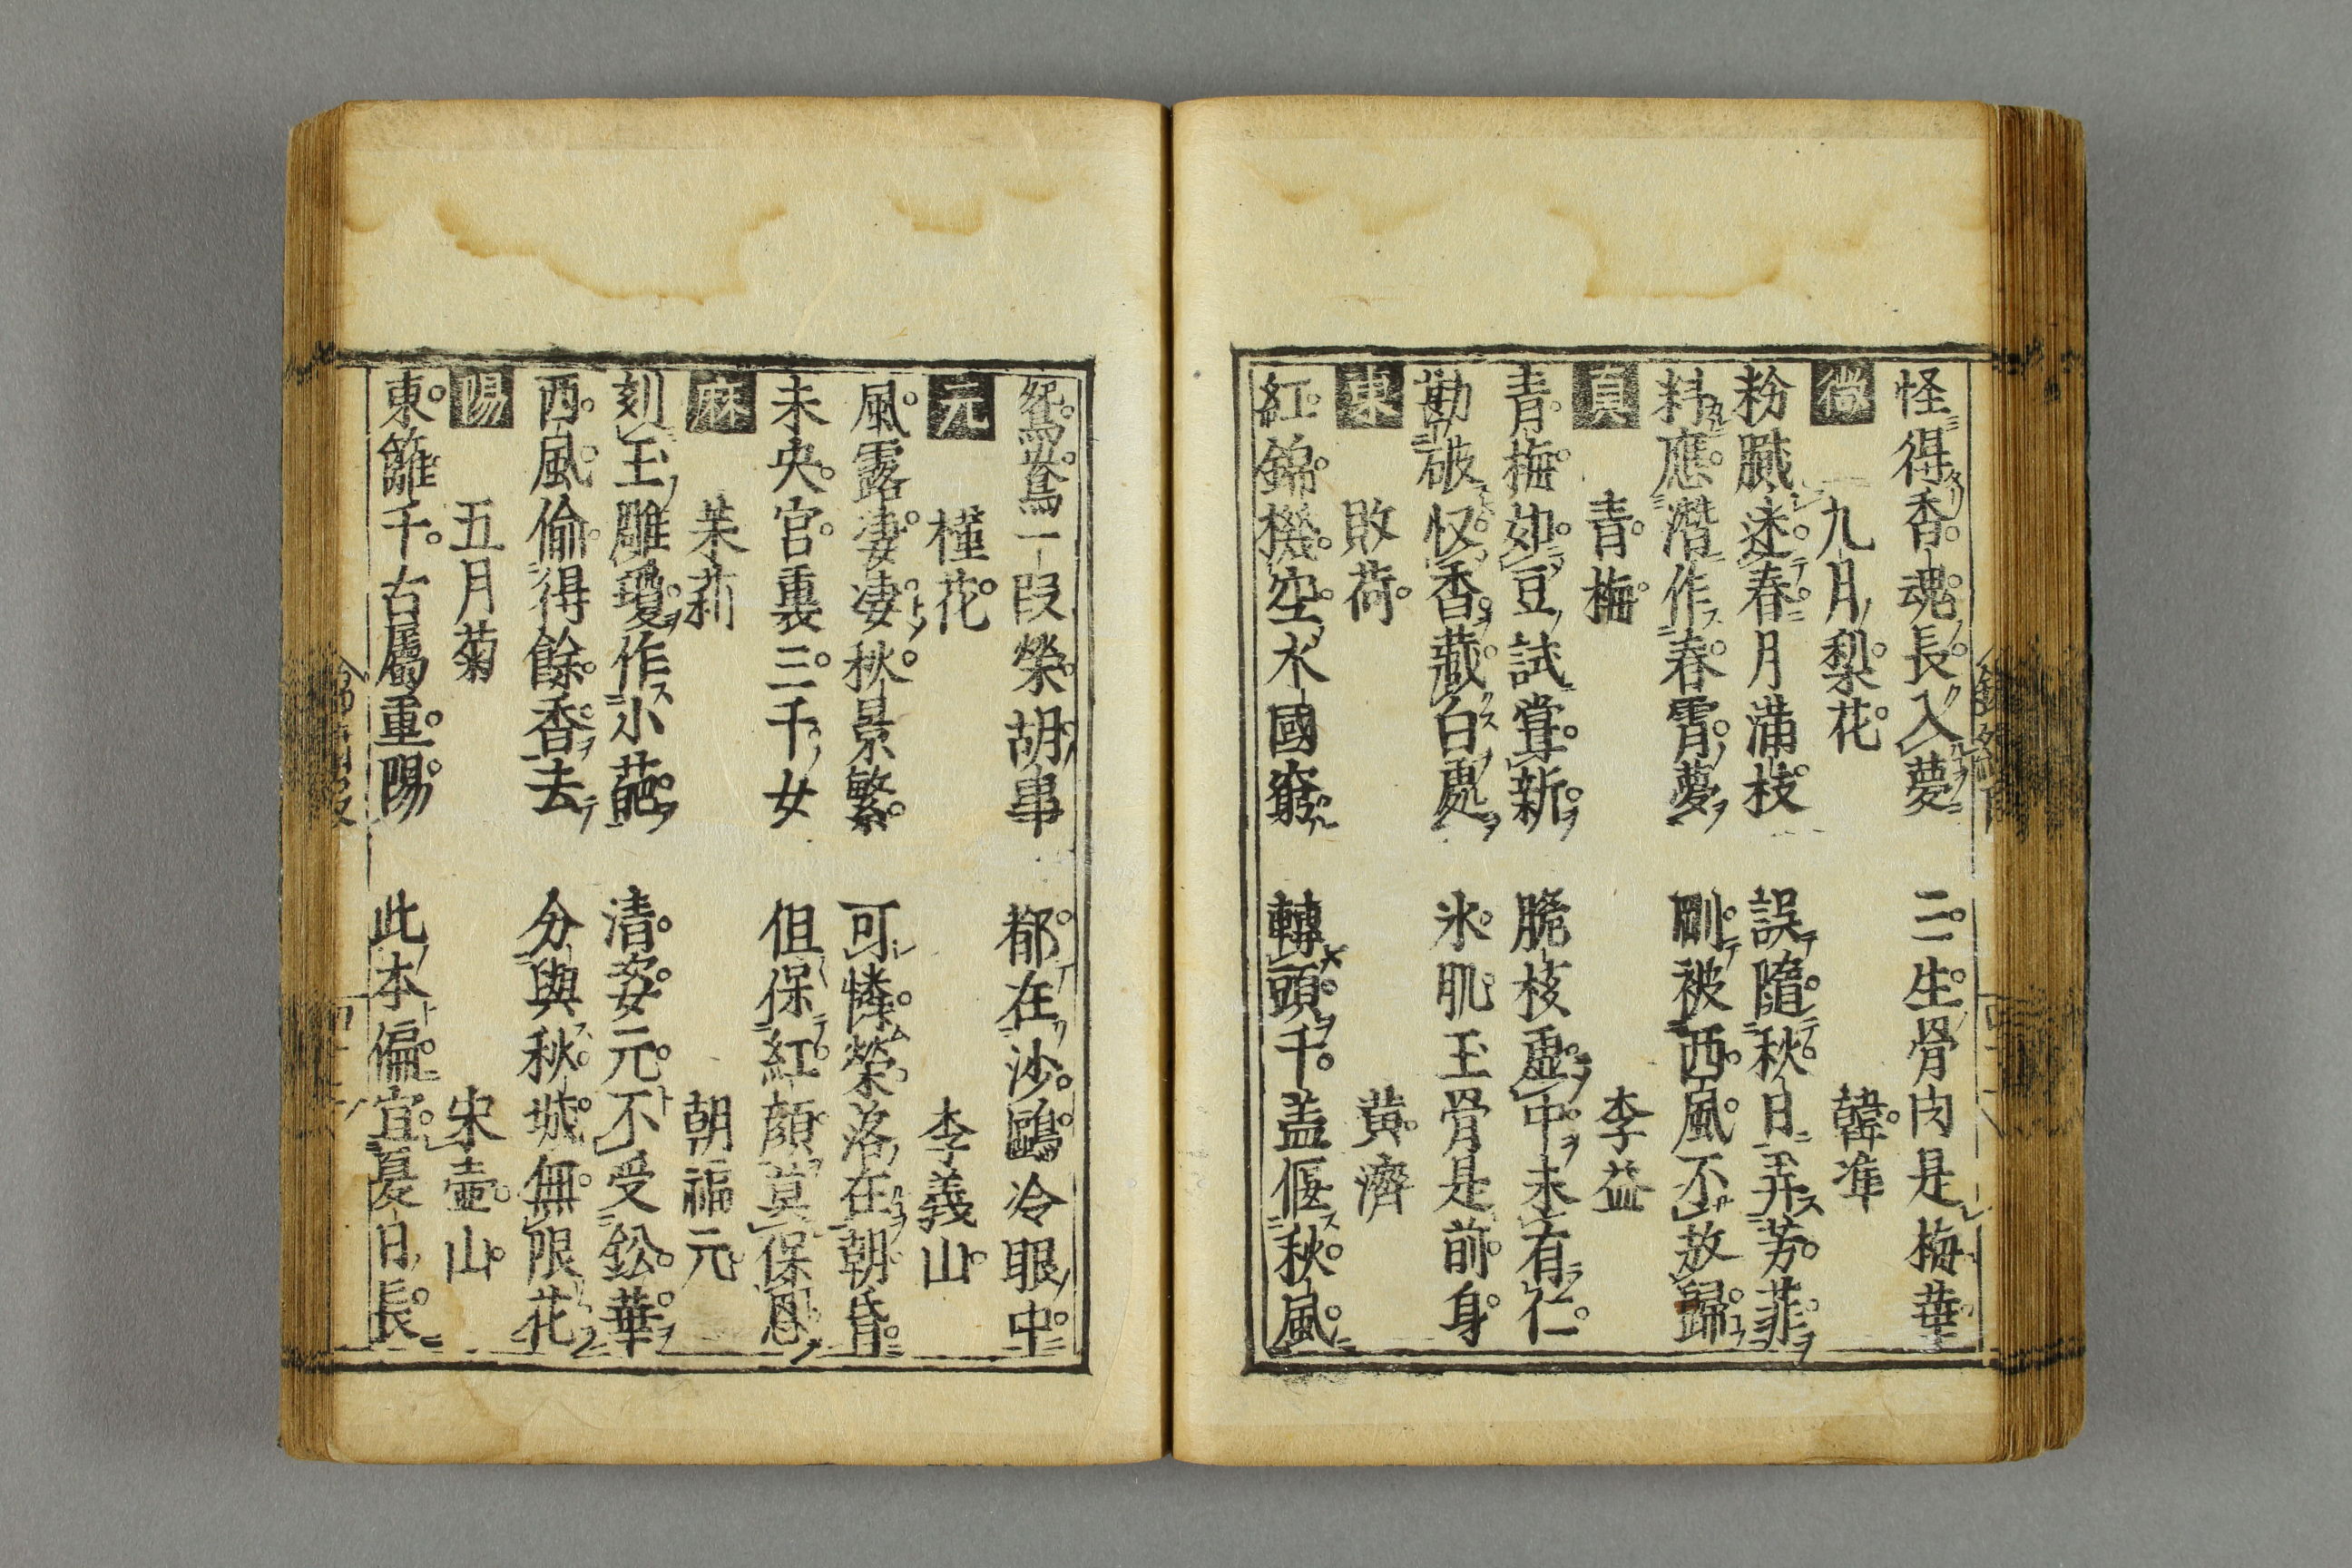 怪得香魂長入夢 三生骨肉是梅華
微 九月梨花 韓准
粉膩迷春月滿枝 誤隨秋日弄芳菲
料應潛作春宵夢 剛被西風不放歸
真 青梅 李益
青梅如豆試嘗新 脆核虛中未有仁
勘破收香藏白處 氷肌玉骨是前身
東 敗荷 黄濟
紅錦機空水國窮 轉頭千盖偃秋風
鴛鴦一段榮胡事 都在沙鷗冷眼中
元 槿花 李義山
風露淒淒秋景繁 可憐榮落在朝昏
未央宮裏三千女 但保紅顔莫保恩
麻 茉莉 朝福元
刻玉雕瓊作小葩 清姿元不受鉛華
西風偷得餘香去 分與秋城無限花
陽 五月菊 宋壺山
東籬千古屬重陽 此本偏宜夏日長